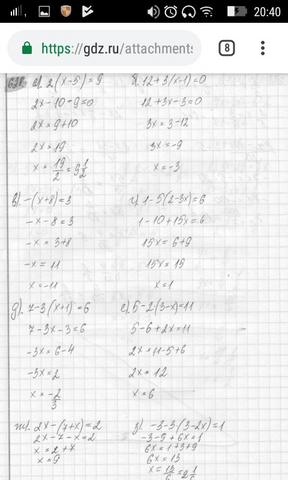 20:40
https://gdz.ru/attachments
8
а) 2(x-5)=9
2x-10-9=0
2x=9+10
2x=19
x=19/2=9 1/2
б) 12+3(x-1)=0
12+3x-3=0
3x=3-12
3x=-9
x=-3
в) -(x+8)=3
-x-8=3
-x=3+8
-x=11
x=-11
г) 1-5(2-3x)=6
1-10+15x=6
15x=6+9
15x=15
x=1
д) 7-3(x+1)=6
7-3x-3=6
-3x=6-4
-3x=2
x=-2/3
е) 5-2(3-x)=11
5-6+2x=11
2x=11-5+6
2x=12
x=6
ж) 2x-(7+x)=2
2x-7-x=2
x=2+7
x=9
з) -3-3(3-2x)=1
-3-9+6x=1
6x=1+3+9
6x=13
x=13/6=2 1/6